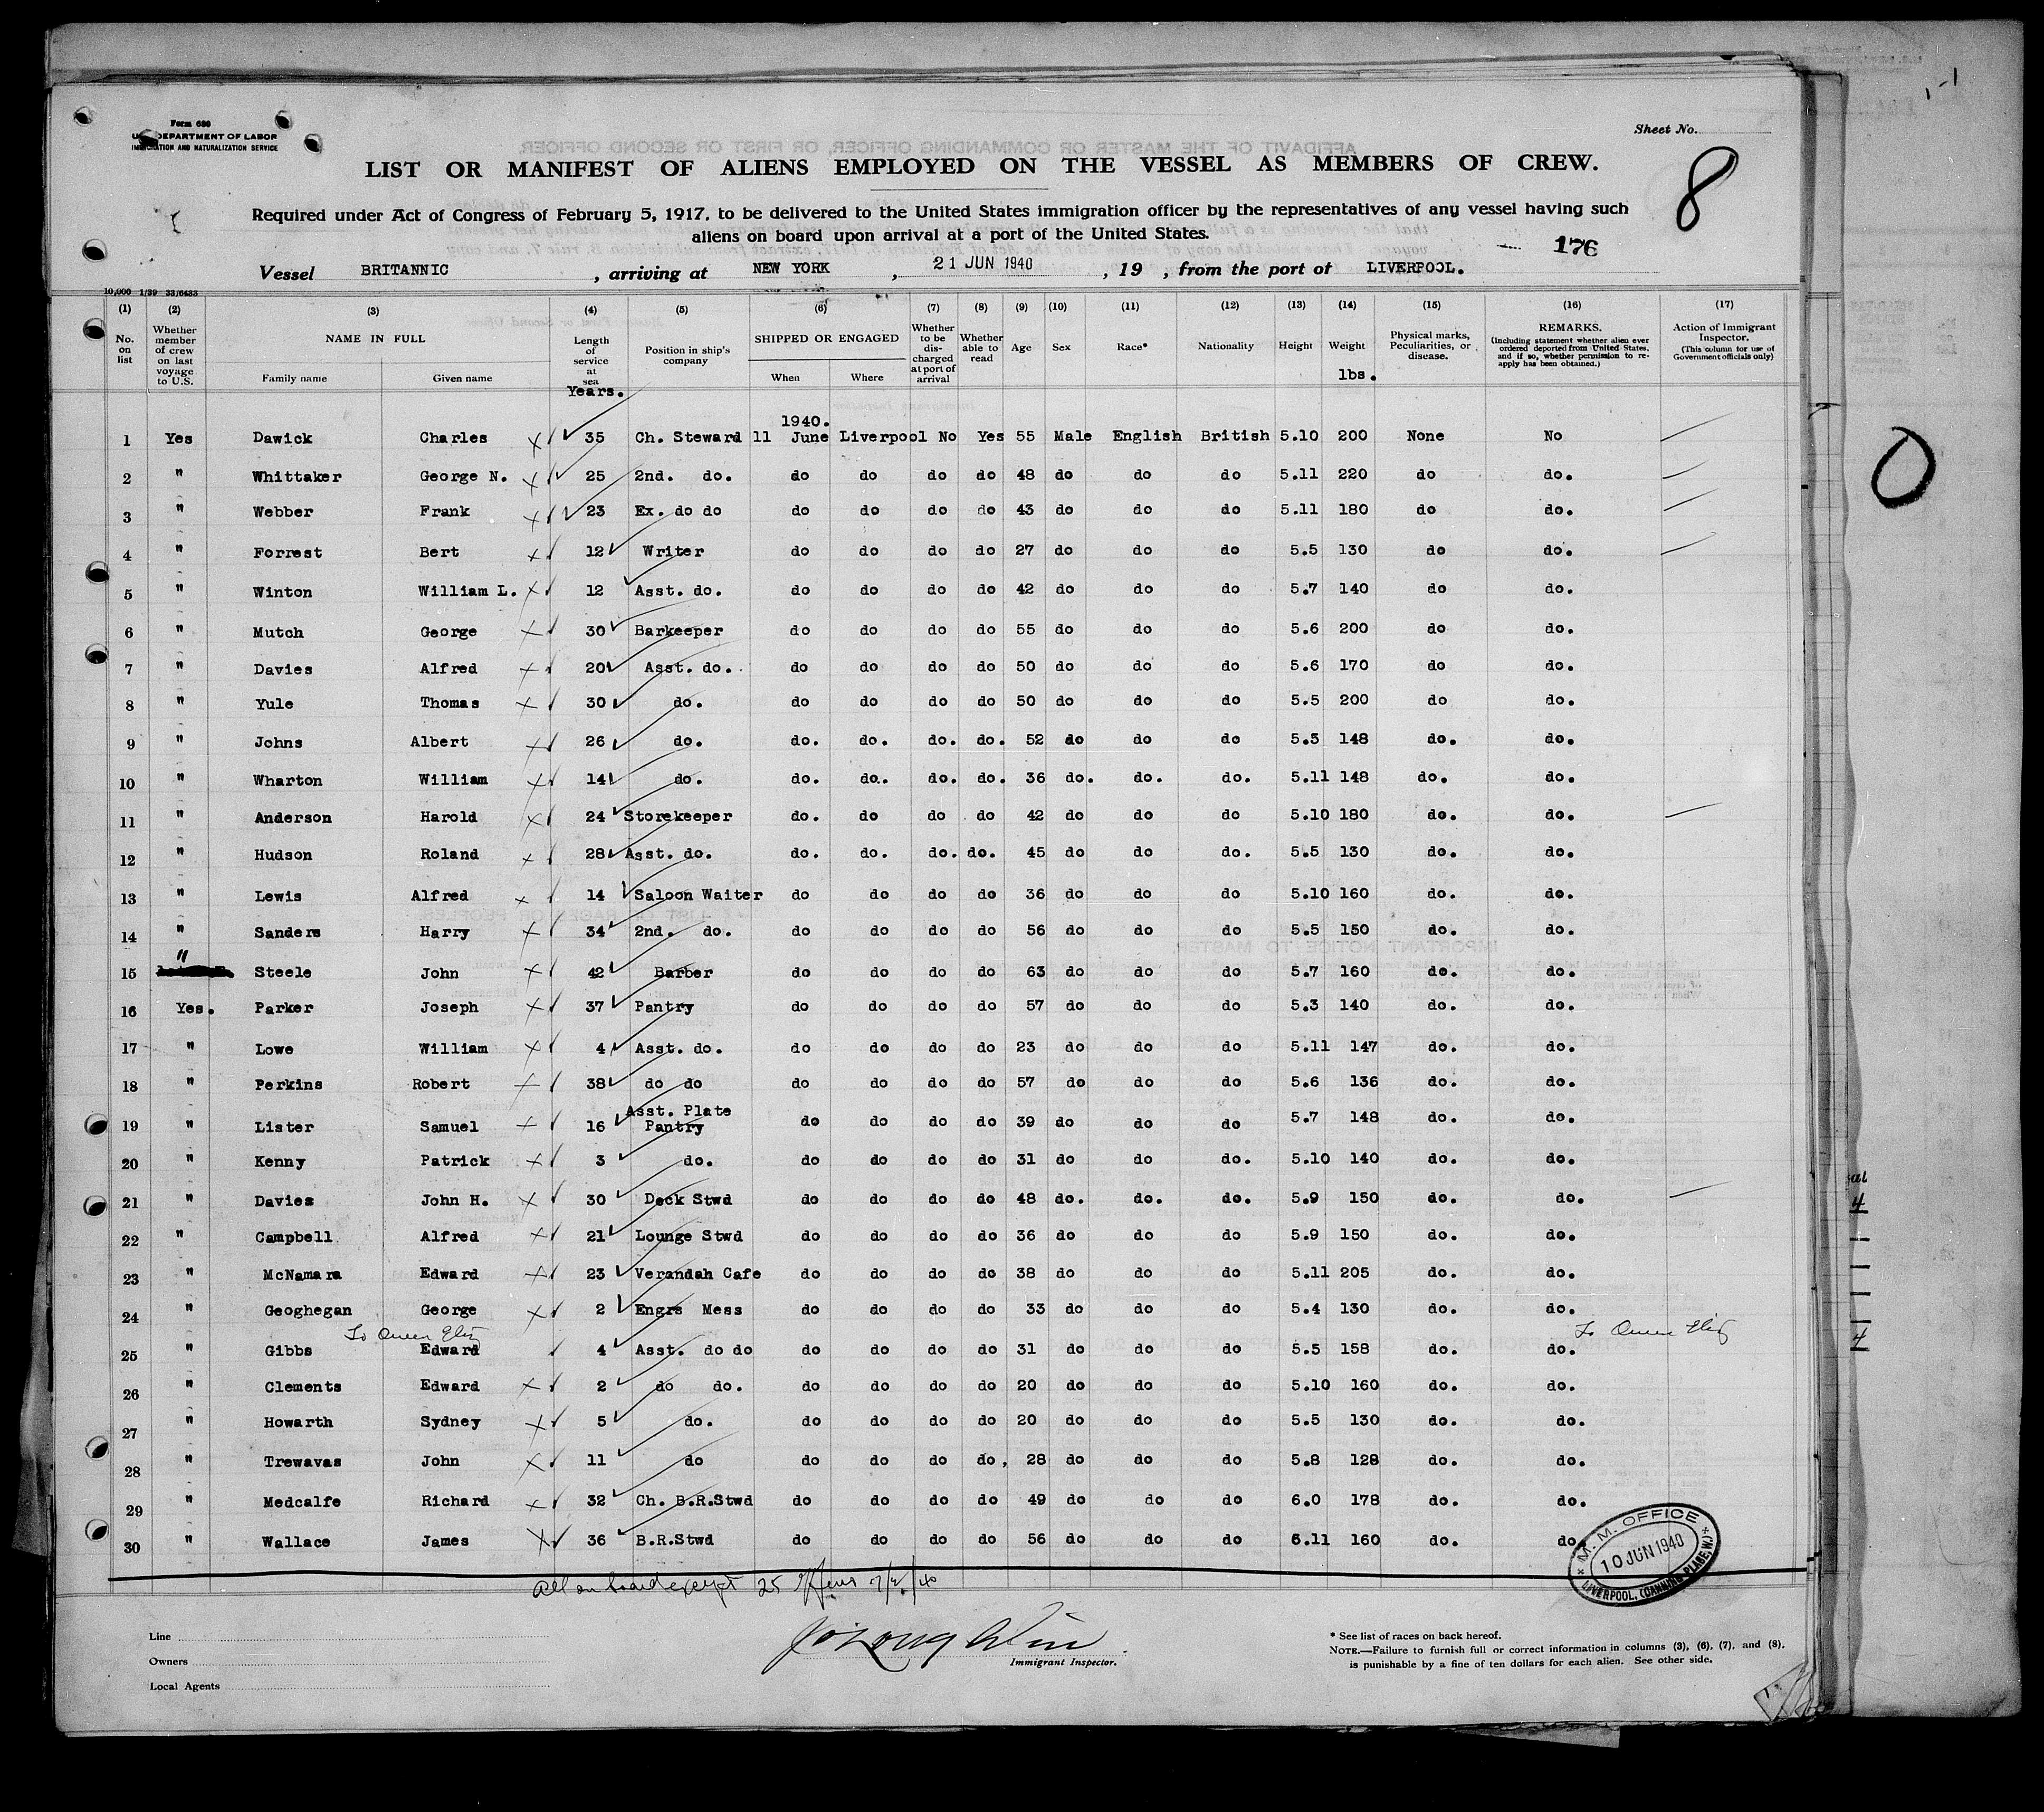 Form 680
U. S. DEPARTMENT OF LABOR
IMMIGRATION AND NATURALIZATION SERVICE
Sheet No.
8
LIST OR MANIFEST OF ALIENS EMPLOYED ON THE VESSEL AS MEMBERS OF CREW.
Required under Act of Congress of February 5, 1917, to be delivered to the United States immigration officer by the representatives of any vessel having such
aliens on board upon arrival at a port of the United States.
176
Vessel BRITANNIC, arriving at NEW YORK, 21 JUN 1940, 19 , from the port of LIVERPOOL.
10,000 1/39 33/6433
(1) (2) (3) (4) (5) (6) (7) (8) (9) (10) (11) (12) (13) (14) (15) (16) (17)
No. on list | Whether member of crew on last voyage to U.S. | NAME IN FULL Family name Given name | Length of service at sea Years. | Position in ship's company | SHIPPED OR ENGAGED When Where | Whether to be discharged at port of arrival | Whether able to read | Age | Sex | Race* | Nationality | Height | Weight lbs. | Physical marks, Peculiarities, or disease. | REMARKS. (Including statement whether alien ever ordered deported from United States, and if so, whether permission to re-apply has been obtained.) | Action of Immigrant Inspector. (This column for use of Government officials only)
1940.
1 Yes Dawick Charles 35 Ch. Steward 11 June Liverpool No Yes 55 Male English British 5.10 200 None No
2 " Whittaker George N. 25 2nd. do. do do do do 48 do do do 5.11 220 do do.
3 " Webber Frank 23 Ex. do do do do do do 43 do do do 5.11 180 do do.
4 " Forrest Bert 12 Writer do do do do 27 do do do 5.5 130 do do.
5 " Winton William L. 12 Asst. do. do do do do 42 do do do 5.7 140 do do.
6 " Mutch George 30 Barkeeper do do do do 55 do do do 5.6 200 do do.
7 " Davies Alfred 20 Asst. do. do do do do 50 do do do 5.6 170 do do.
8 " Yule Thomas 30 do. do do do do 50 do do do 5.5 200 do do.
9 " Johns Albert 26 do. do. do. do. do. 52 do do do 5.5 148 do. do.
10 " Wharton William 14 do. do. do.. do. do. 36 do. do. do. 5.11 148 do. do.
11 " Anderson Harold 24 Storekeeper do. do do do 42 do do do 5.10 180 do. do.
12 " Hudson Roland 28 Asst. do. do. do. do. do. 45 do do do. 5.5 130 do. do.
13 " Lewis Alfred 14 Saloon Waiter do do do do 36 do do do 5.10 160 do. do.
14 " Sanders Harry 34 2nd. do. do do do do 56 do do do 5.5 150 do. do.
15 " Steele John 42 Barber do do do do 63 do do do 5.7 160 do. do.
16 Yes. Parker Joseph 37 Pantry do do do do 57 do do do 5.3 140 do. do.
17 " Lowe William 4 Asst. do. do do do do 23 do do do 5.11 147 do. do.
18 " Perkins Robert 38 do do do do do do 57 do do do 5.6 136 do. do.
19 " Lister Samuel 16 Asst. Plate Pantry do do do do 39 do do do 5.7 148 do. do.
20 " Kenny Patrick 3 do. do do do do 31 do do do. 5.10 140 do. do.
21 " Davies John H. 30 Deck Stwd do do do do 48 do. do. do. 5.9 150 do. do.
22 " Campbell Alfred 21 Lounge Stwd do do do do 36 do do do 5.9 150 do. do.
23 " McNamara Edward 23 Verandah Cafe do do do do 38 do do do 5.11 205 do. do.
24 " Geoghegan George 2 Engrs Mess do do do do 33 do do do 5.4 130 do. do.
To Queen Eliz To Queen Eliz
25 " Gibbs Edward 4 Asst. do do do do do do 31 do do do 5.5 158 do. do.
26 " Clements Edward 2 do do. do do do do 20 do do do 5.10 160 do. do.
27 " Howarth Sydney 5 do. do do do do 20 do do do 5.5 130 do. do.
28 " Trewavas John 11 do do do do do, 28 do do do 5.8 128 do. do.
29 " Medcalfe Richard 32 Ch. B.R.Stwd do do do do 49 do do do 6.0 178 do. do.
30 " Wallace James 36 B.R.Stwd do do do do 56 do do do 5.11 160 do. do
M. M. OFFICE
10 JUN 1940
LIVERPOOL, (CANNING PLACE, W.)
All on board except 25
Line
Owners
Local Agents
Immigrant Inspector.
* See list of races on back hereof.
NOTE.—Failure to furnish full or correct information in columns (3), (6), (7), and (8),
is punishable by a fine of ten dollars for each alien. See other side.